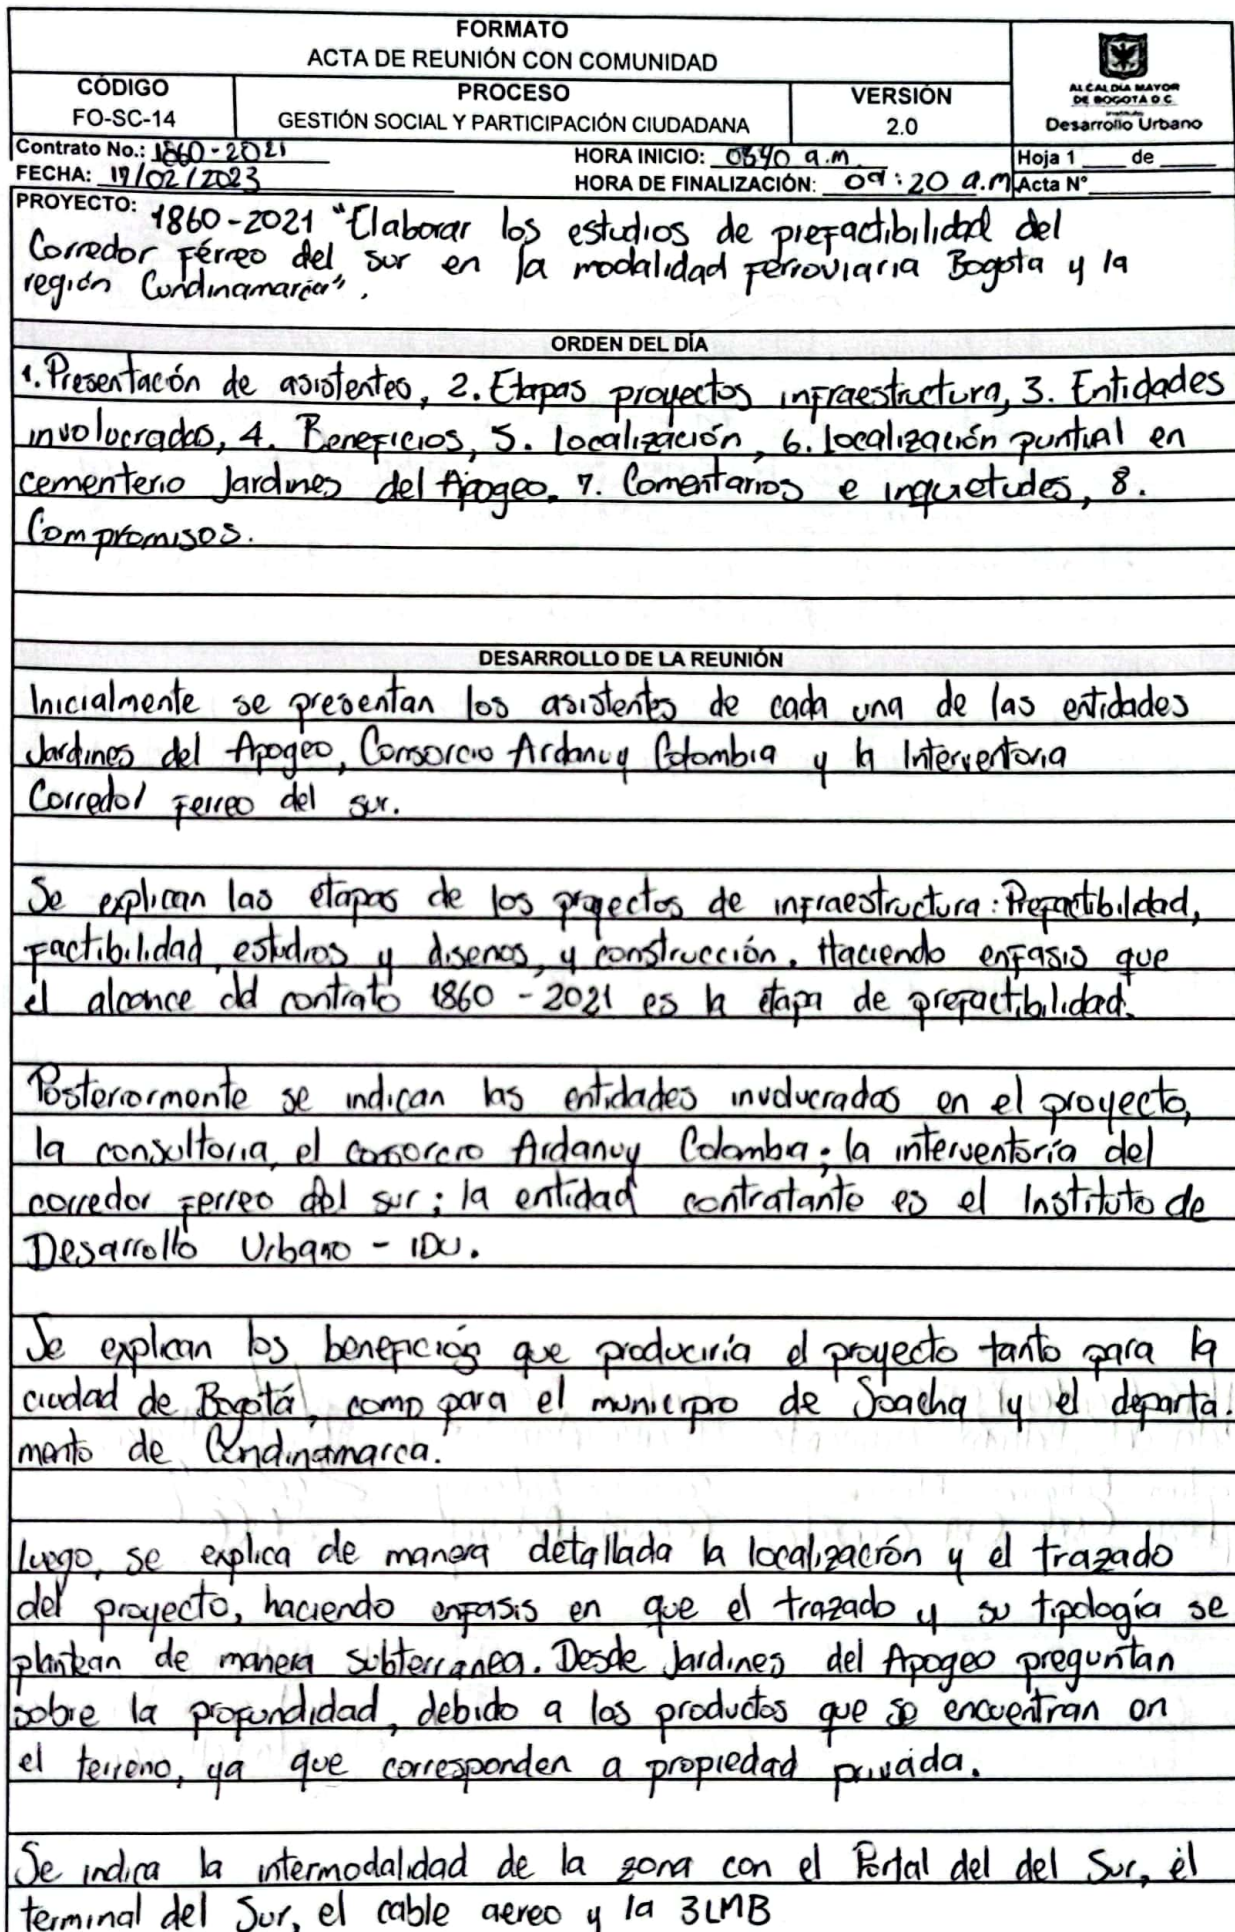 FORMATO
ACTA DE REUNIÓN CON COMUNIDAD
CÓDIGO
FO-SC-14
PROCESO
GESTIÓN SOCIAL Y PARTICIPACIÓN CIUDADANA
VERSIÓN
2.0
ALCALDÍA MAYOR
DE BOGOTÁ D.C.
Instituto
Desarrollo Urbano
Contrato No.: 1860-2021
HORA INICIO: 0840 a.m
Hoja 1 ____ de ____
FECHA: 17/02/2023
HORA DE FINALIZACIÓN: 09:20 a.m
Acta N°
PROYECTO: 1860-2021 "Elaborar los estudios de prefactibilidad del
Corredor Férreo del sur en la modalidad ferroviaria Bogota y la
región Cundinamarca".
ORDEN DEL DÍA
1. Presentación de asistentes, 2. Etapas proyectos infraestructura, 3. Entidades
involucradas, 4. Beneficios, 5. localización, 6. localización puntual en
cementerio Jardines del Apogeo, 7. Comentarios e inquietudes, 8.
Compromisos.
DESARROLLO DE LA REUNIÓN
Inicialmente se presentan los asistentes de cada una de las entidades
Jardines del Apogeo, Consorcio Ardanuy Colombia y la Interventoria
Corredor Ferreo del sur.
Se explican las etapas de los proyectos de infraestructura: Prefactibilidad,
factibilidad, estudios y diseños, y construcción. Haciendo enfasis que
el alcance del contrato 1860 - 2021 es la etapa de prefactibilidad.
Posteriormente se indican las entidades involucradas en el proyecto,
la consultoria, el consorcio Ardanuy Colombia; la interventoría del
corredor ferreo del sur; la entidad contratante es el Instituto de
Desarrollo Urbano - IDU.
Se explican los beneficios que produciría el proyecto tanto para la
ciudad de Bogotá, como para el municipio de Soacha y el departa-
mento de Cundinamarca.
Luego, se explica de manera detallada la localización y el trazado
del proyecto, haciendo enfasis en que el trazado y su tipología se
plantean de manera subterranea. Desde Jardines del Apogeo preguntan
sobre la profundidad, debido a los productos que se encuentran en
el terreno, ya que corresponden a propiedad privada.
Se indica la intermodalidad de la zona con el Portal del del Sur, el
terminal del Sur, el cable aereo y la 3LMB